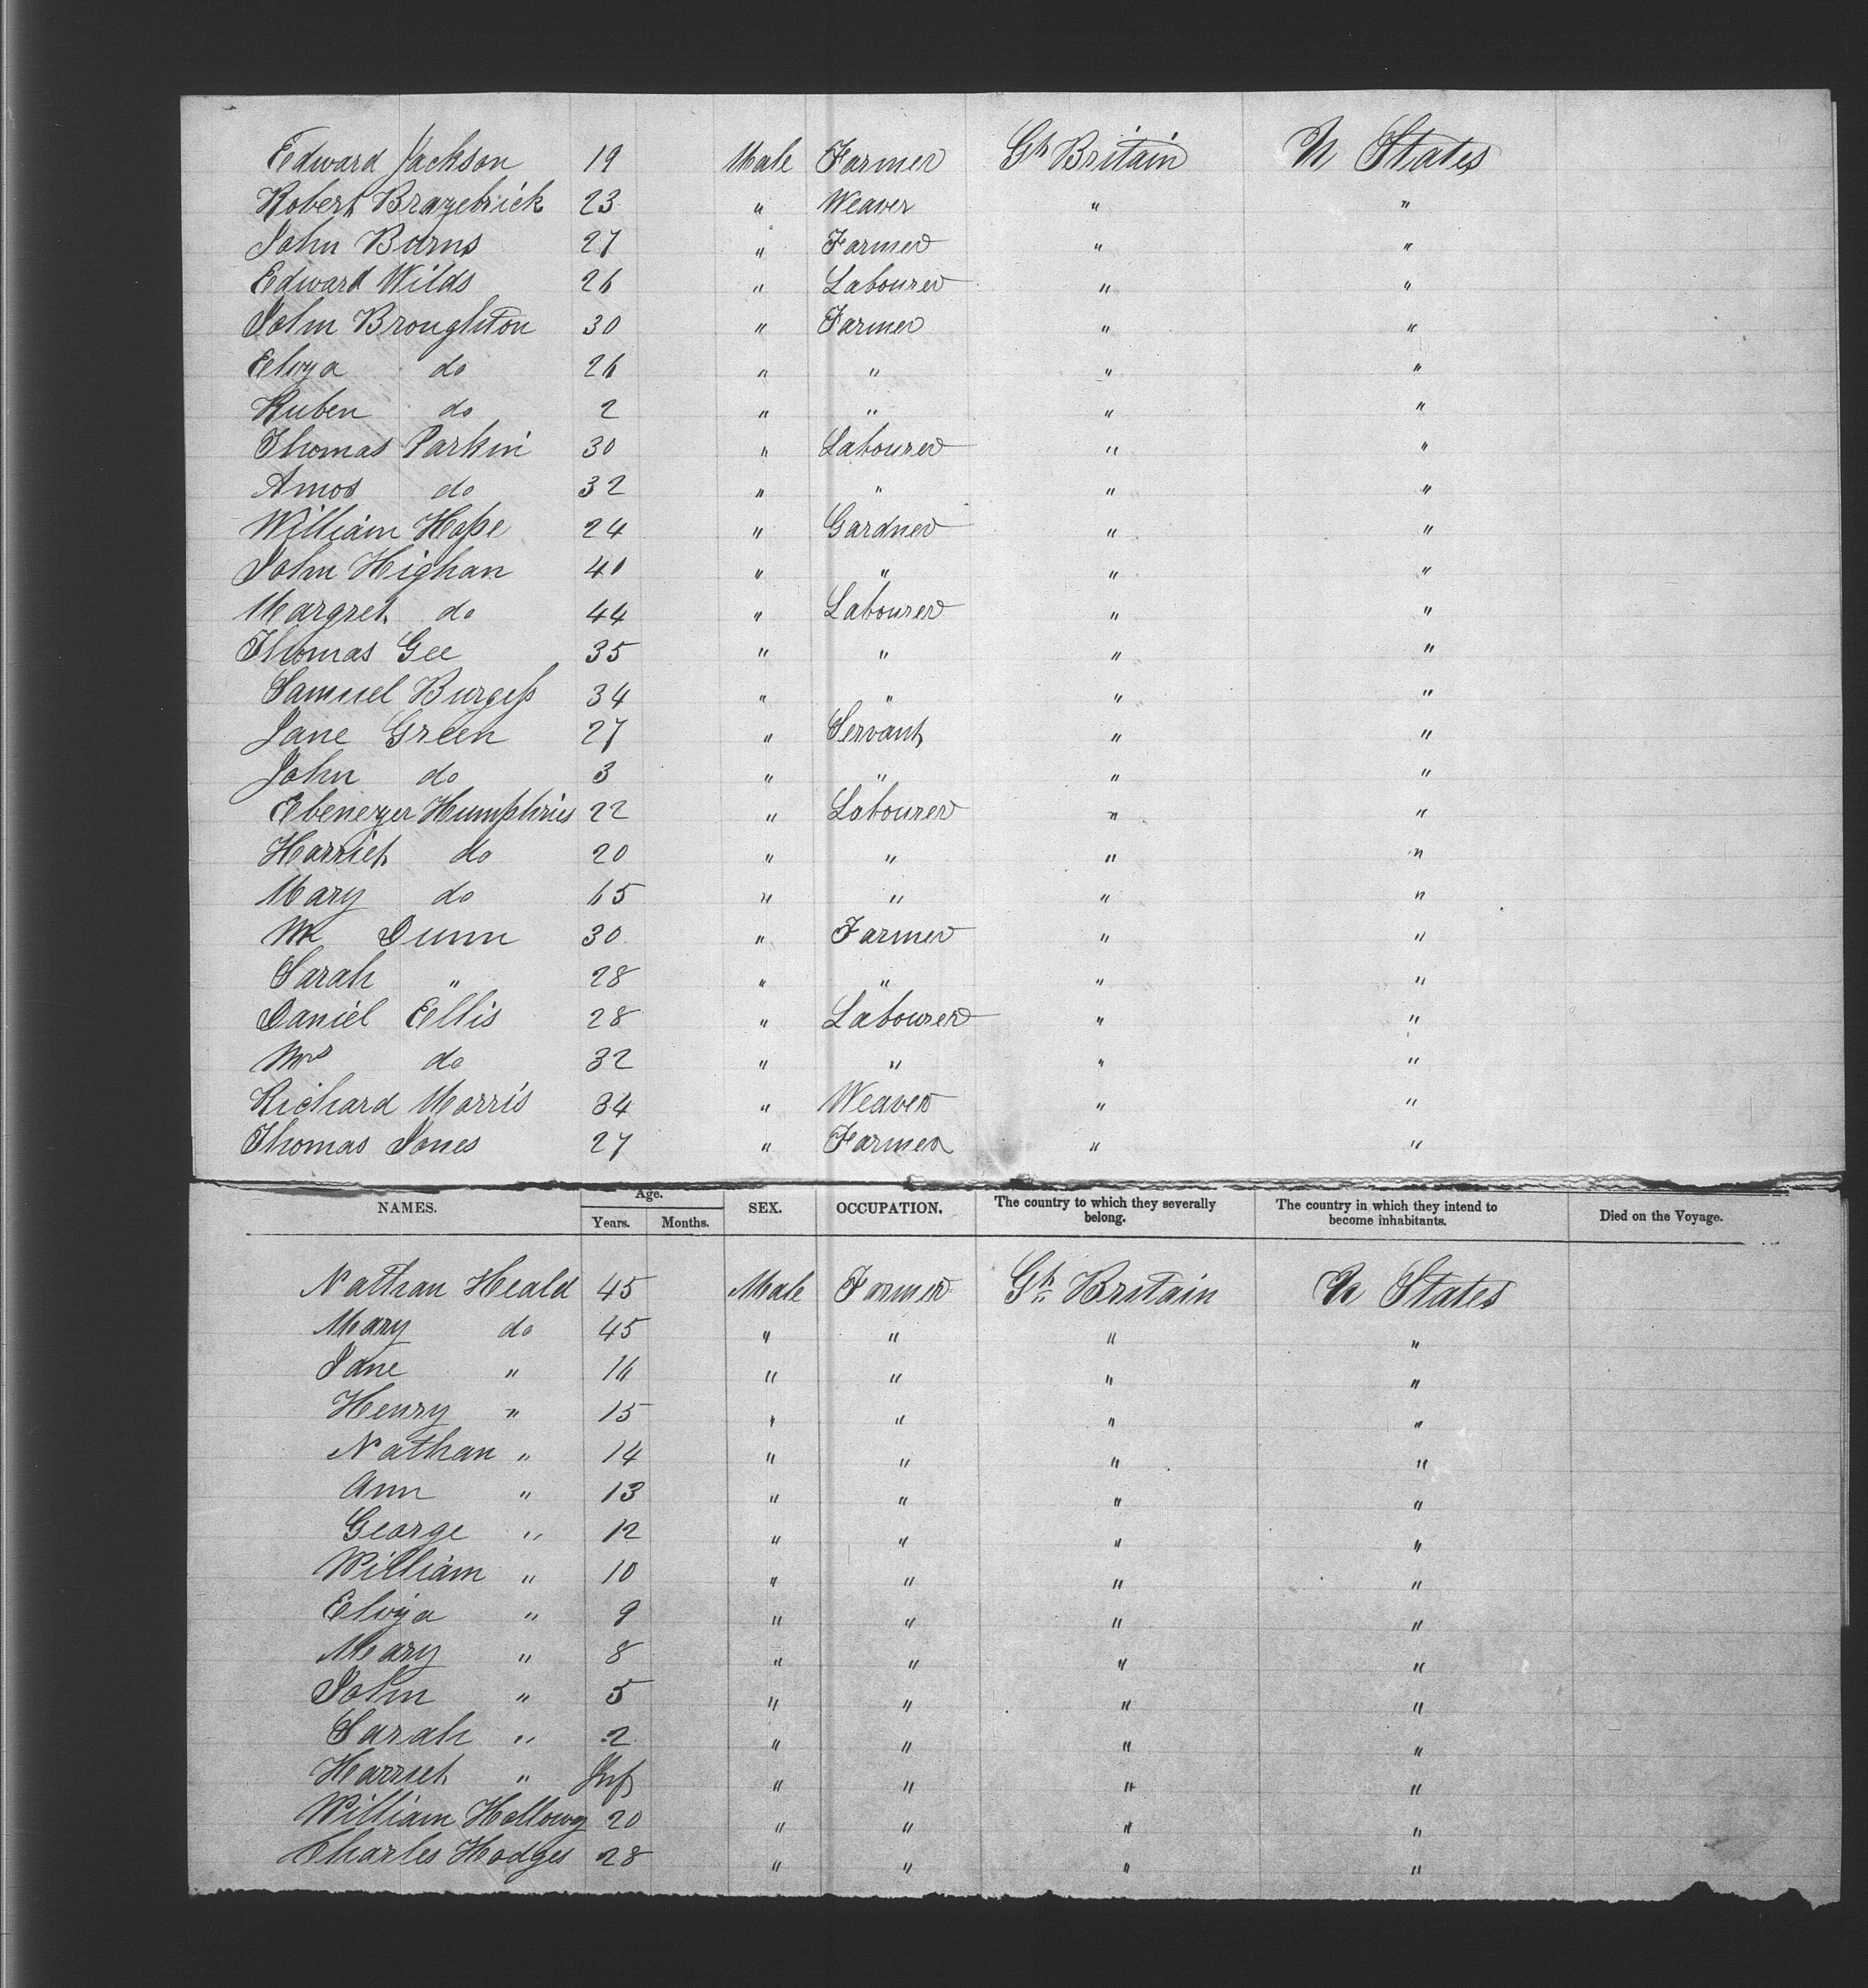 Edward Jackson 19 Male Farmer Gt Britain U States
Robert Brazebrick 23 " Weaver " "
John Burns 27 " Farmer " "
Edward Wilds 26 " Labourer " "
John Broughton 30 " Farmer " "
Eliza do 26 " " " "
Ruben do 2 " " " "
Thomas Parkin 30 " Labourer " "
Amos do 32 " " " "
William Hope 24 " Gardner " "
John Highan 40 " " " "
Margret do 44 " Labourer " "
Thomas Gee 35 " " " "
Samuel Burgess 34 " " " "
Jane Green 27 " Servant " "
John do 3 " " " "
Ebenezer Humphries 22 " Labourer " "
Harriet do 20 " " " "
Mary do 65 " " " "
Dunn 30 " Farmer " "
Sarah " 28 " " " "
Daniel Ellis 28 " Labourer " "
Mrs do 32 " " " "
Richard Morris 34 " Weaver " "
Thomas Jones 27 " Farmer " "
NAMES. Age. Years. Months. SEX. OCCUPATION. The country to which they severally belong. The country in which they intend to become inhabitants. Died on the Voyage.
Nathan Heald 45 Male Farmer Gt Britain U States
Mary do 45 " " " "
Jane " 16 " " " "
Henry " 15 " " " "
Nathan " 14 " " " "
Ann " 13 " " " "
George " 12 " " " "
William " 10 " " " "
Eliza " 9 " " " "
Mary " 8 " " " "
John " 5 " " " "
Sarah " 2 " " " "
Harriet " Inf " " " "
William Holloway 20 " " " "
Charles Hodges 28 " " " "